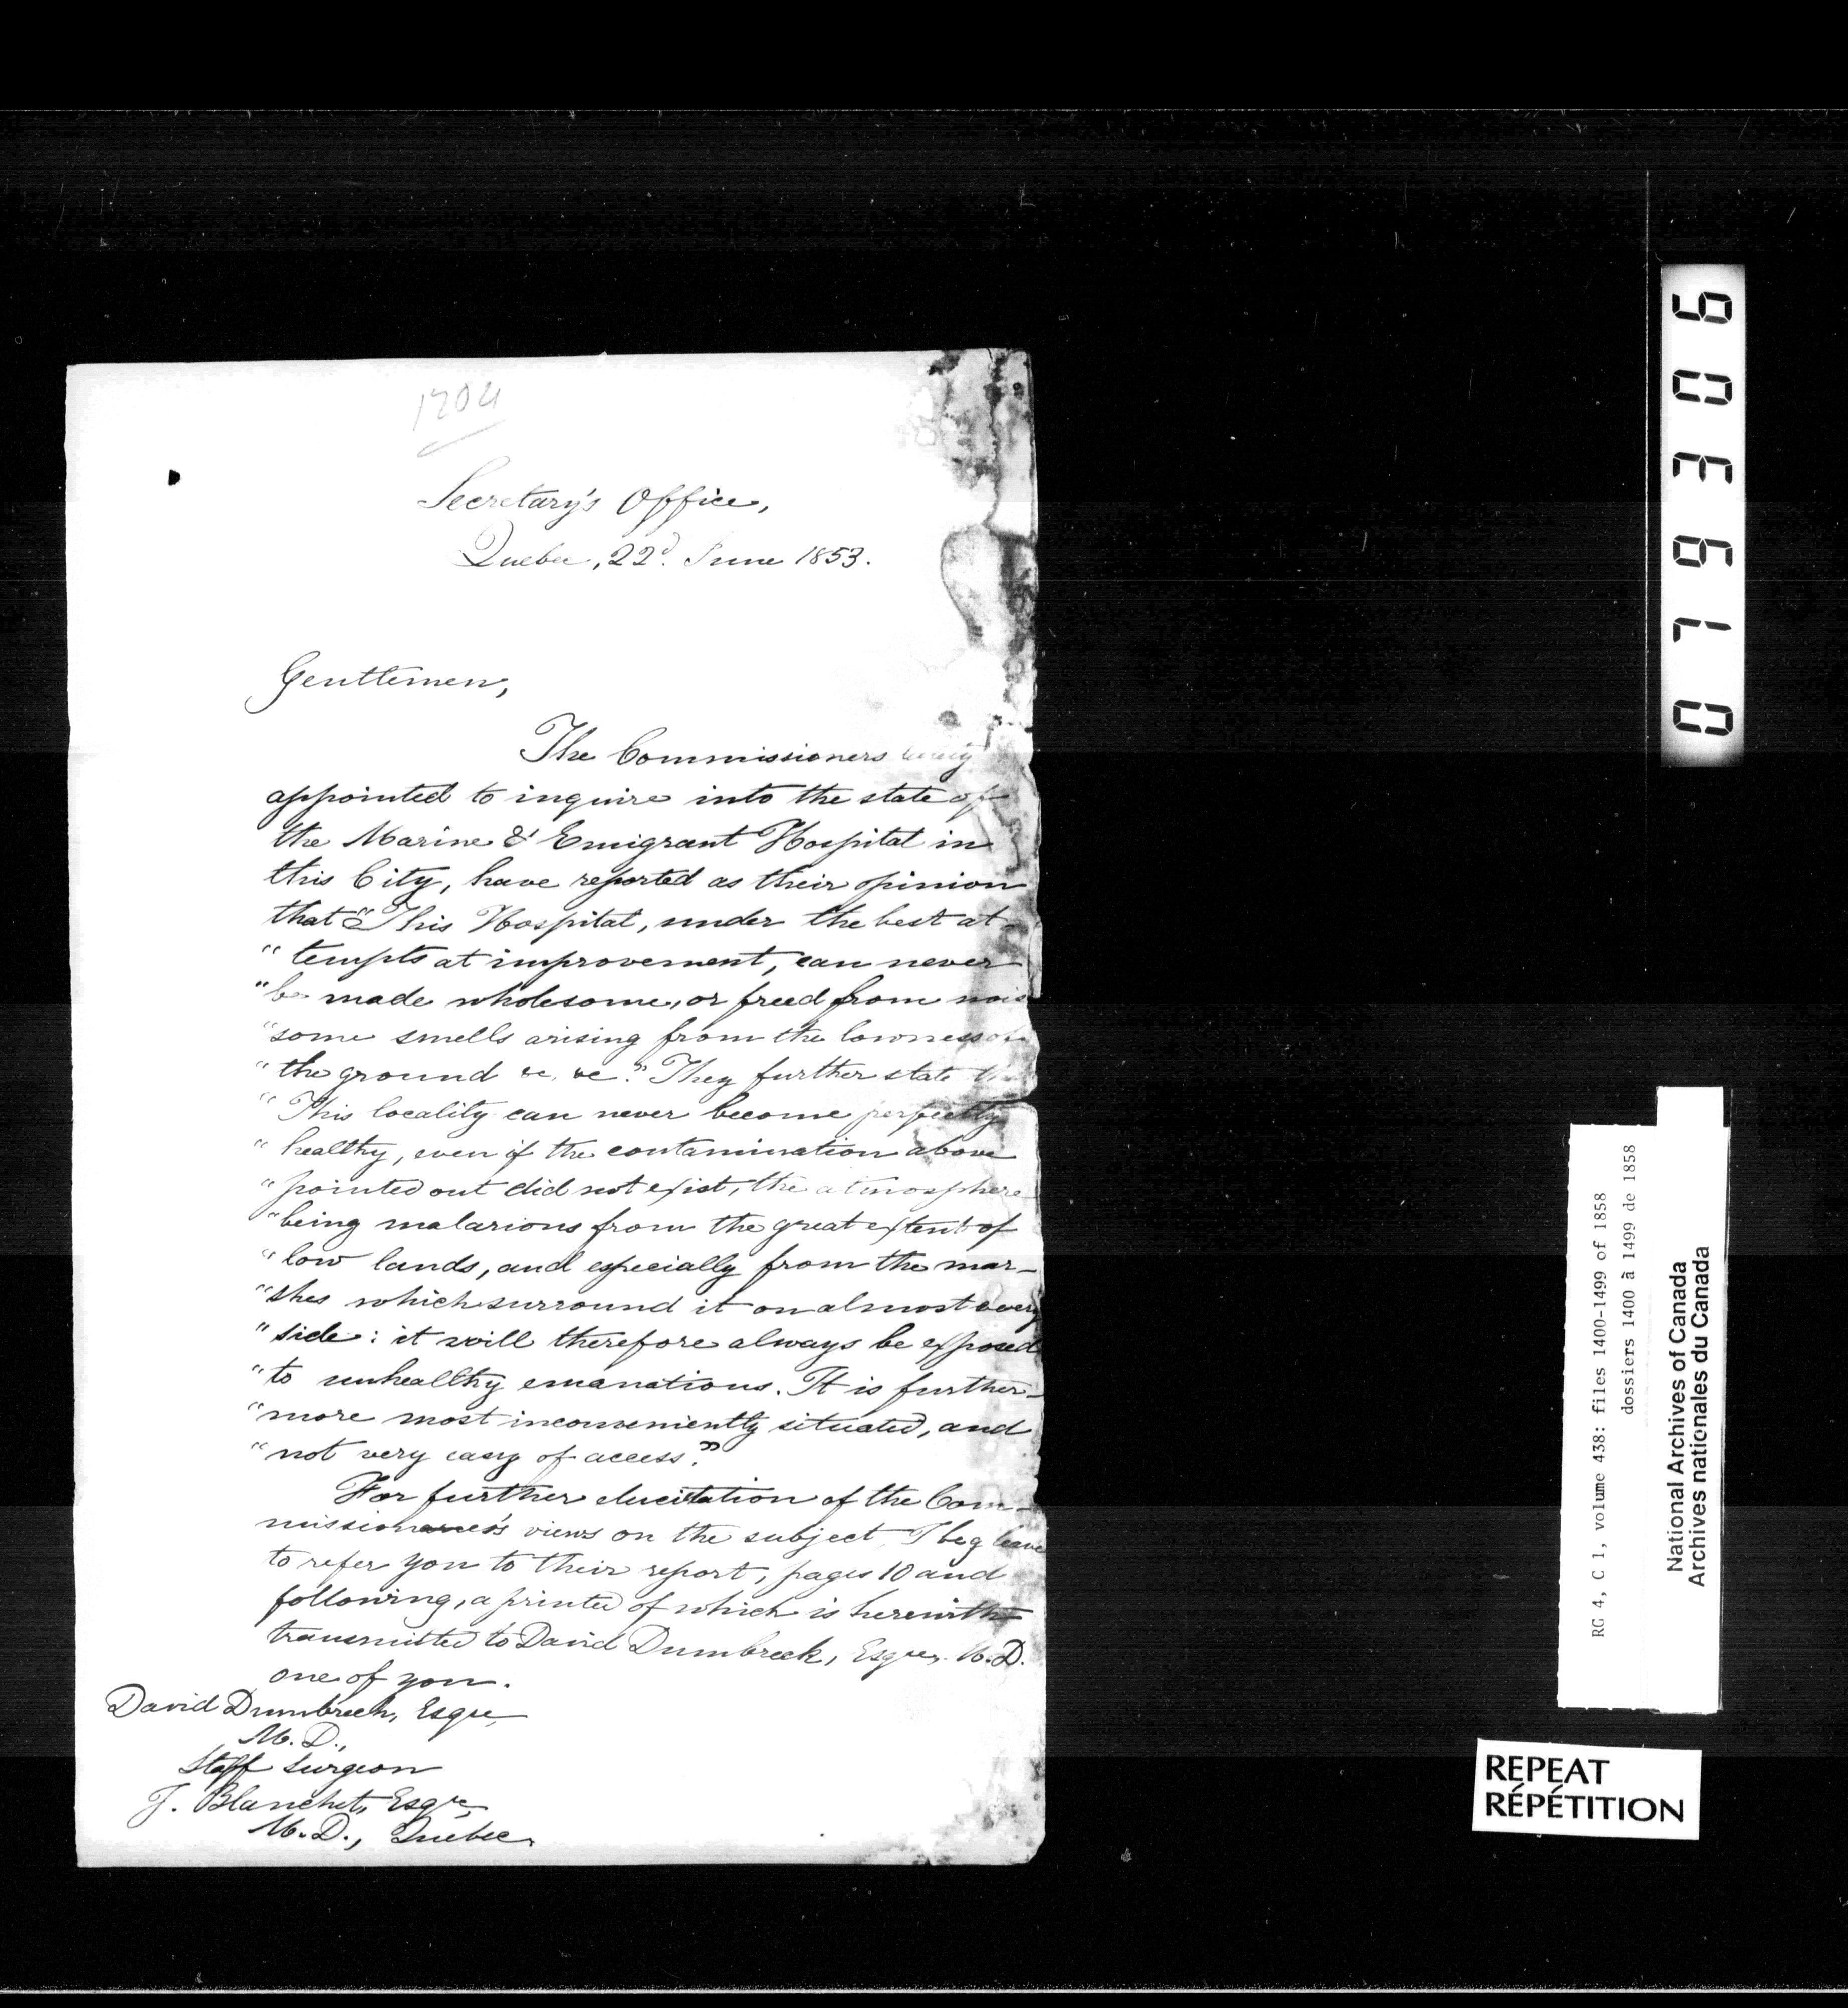 1204
Secretary's Office,
Quebec, 22d. June 1853.
Gentlemen,
The Commissioners lately
appointed to inquire into the state of
the Marine & Emigrant Hospital in
this City, have reported as their opinion
that "This Hospital, under the best at-
"tempts at improvement, can never
"be made wholesome, or freed from noi
"some smells arising from the lowness of
"the ground &c, &c." They further state
"This locality can never become perfectly
"healthy, even if the contamination above
"pointed out did not exist, the atmosphere
"being malarious from the great extent of
"low lands, and especially from the mar-
"shes which surround it on almost every
"side: it will therefore always be exposed
"to unhealthy emanations. It is further-
"more most inconveniently situated, and
"not very easy of access."
For further elucidation of the Com-
missioners views on the subject, I beg leave
to refer you to their report, pages 10 and
following, a printed of which is herewith
transmitted to David Dumbreck, Esqre, M.D.
one of you.
David Dumbreck, Esqre,
M.D.,
Staff Surgeon
J. Blanchet, Esqre,
M.D., Quebec.
019306
RG 4, C 1, volume 438: files 1400-1499 of 1858
dossiers 1400 à 1499 de 1858
National Archives of Canada
Archives nationales du Canada
REPEAT
RÉPÉTITION